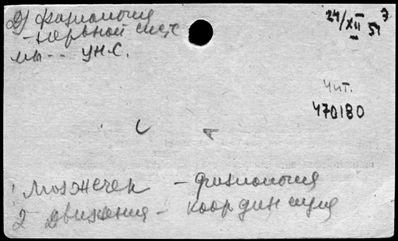 2) физиология
нервной сист
мы -- УНС.
24/XII 51
Чит.
470180
1 Мозжечек - физиология
2 Движения - координация